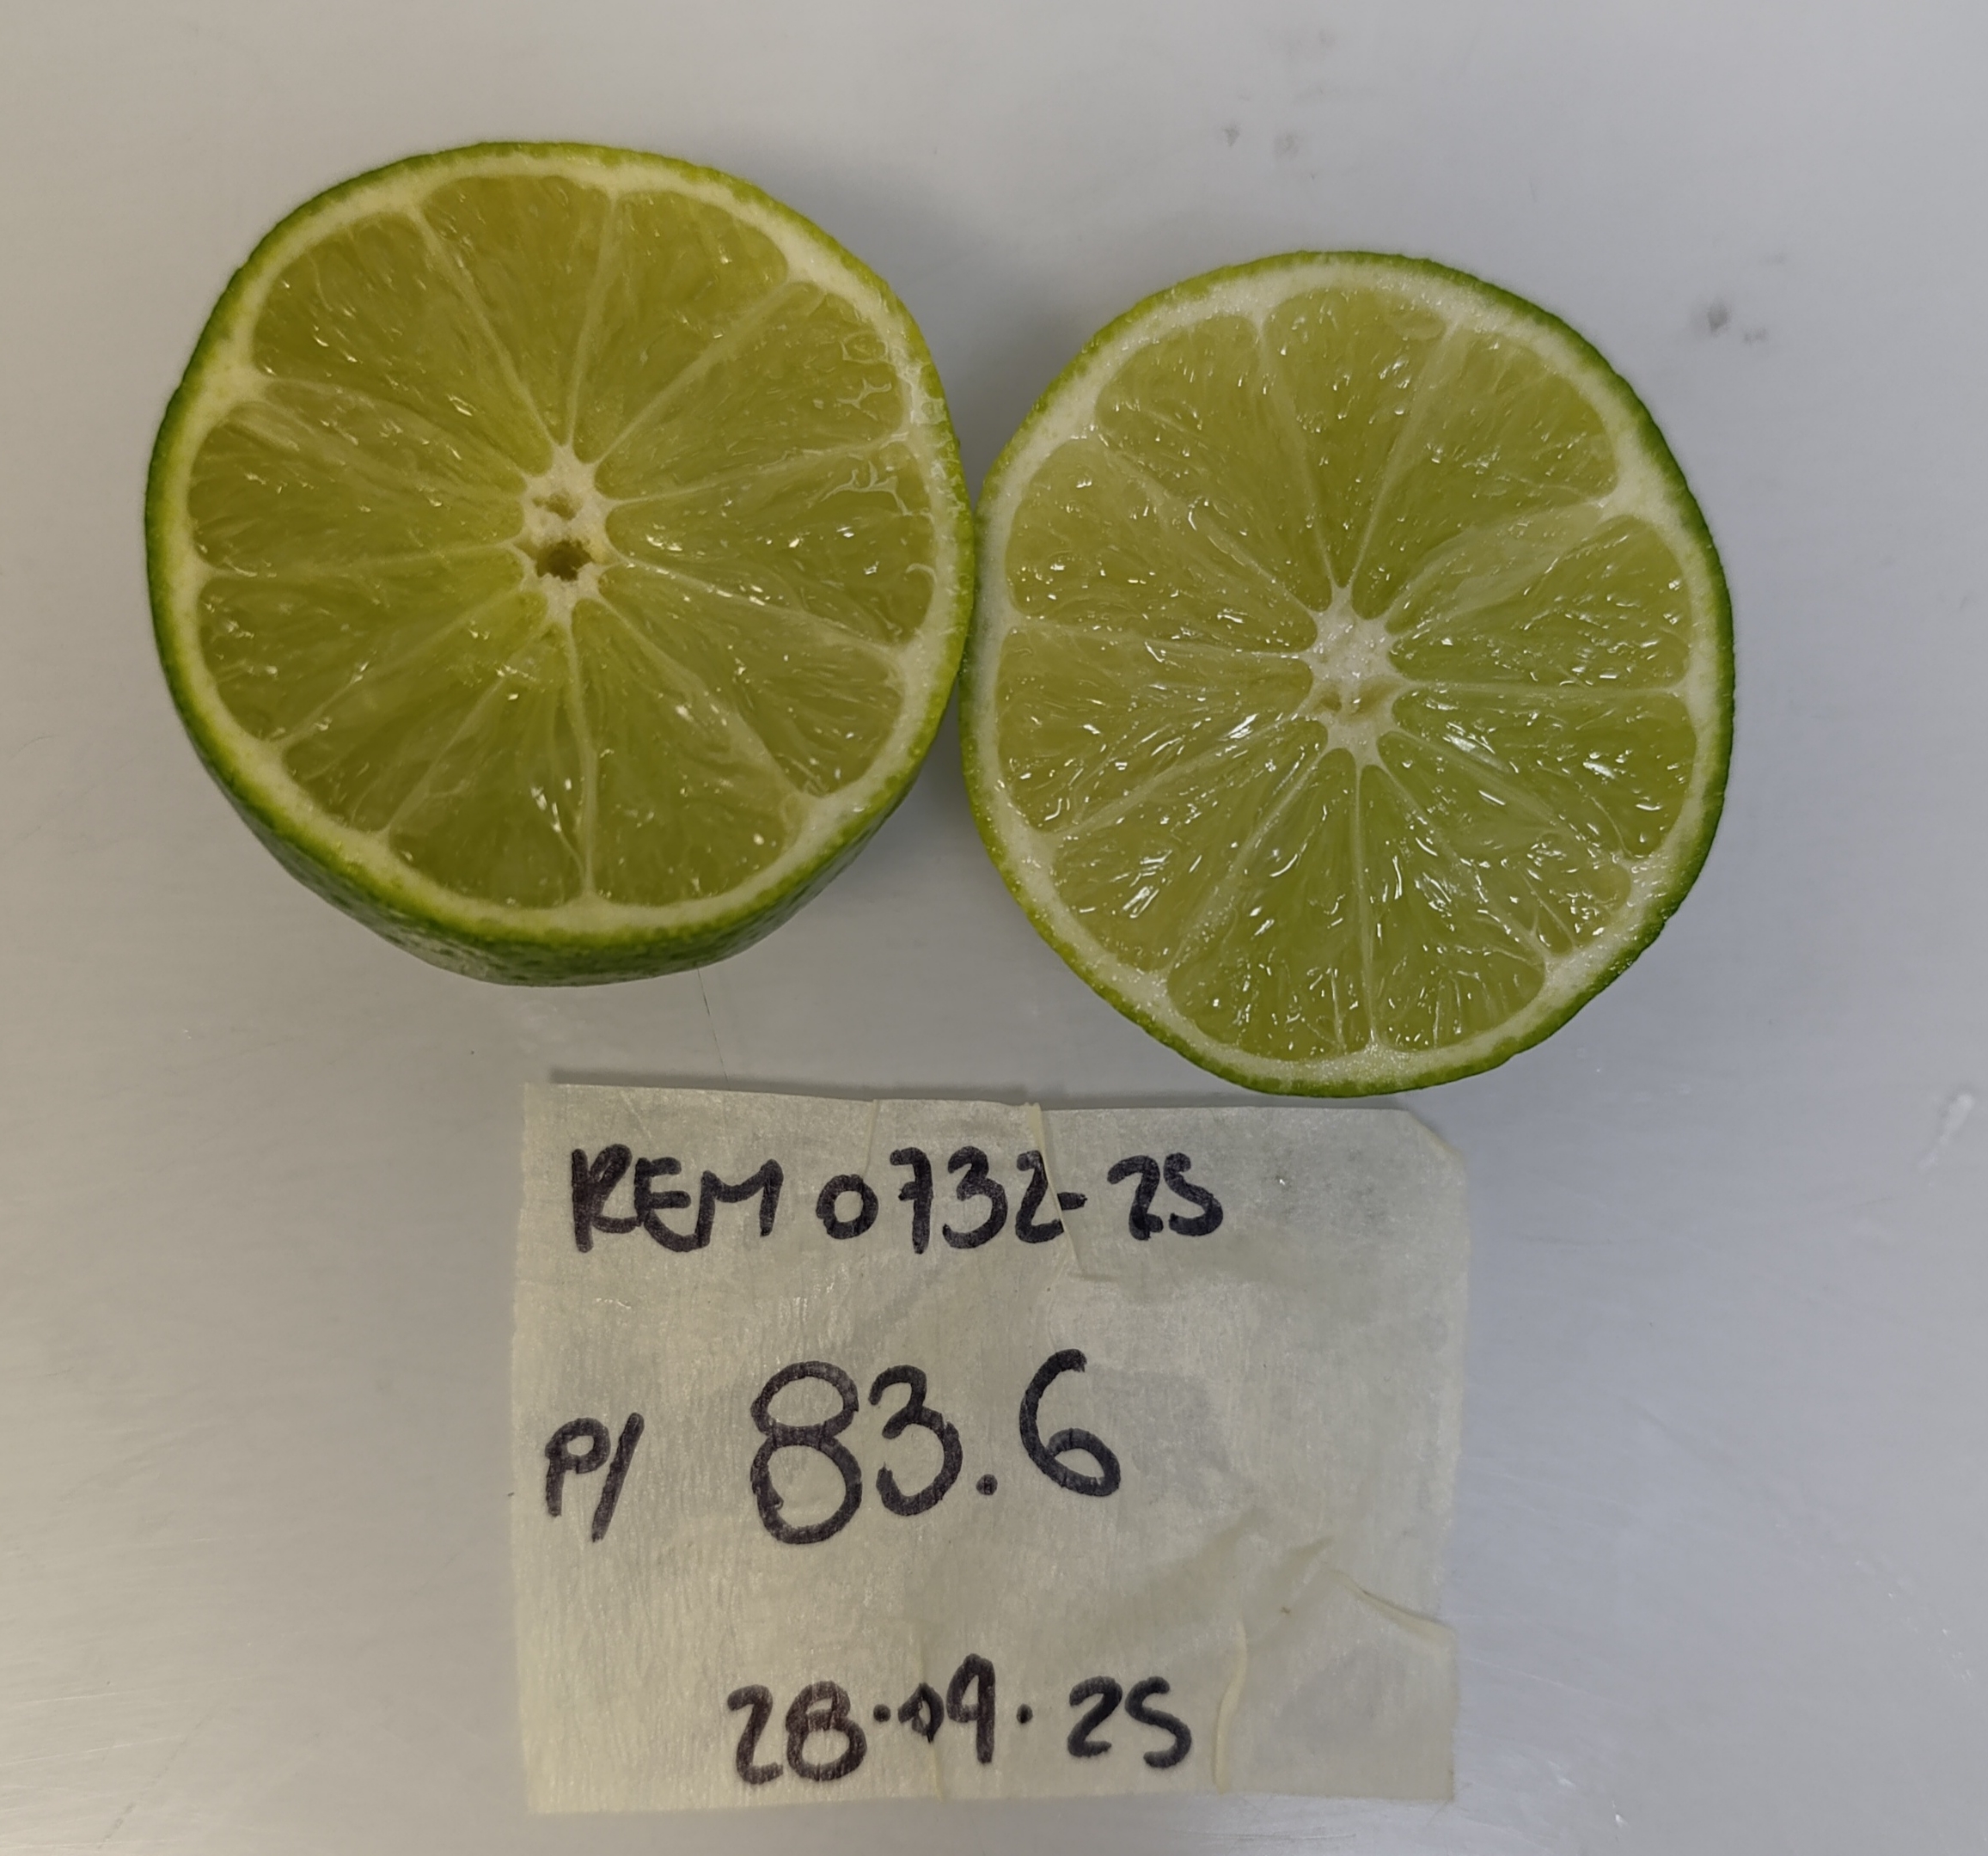 REM 0732-25
P/ 83.6
28.09.25